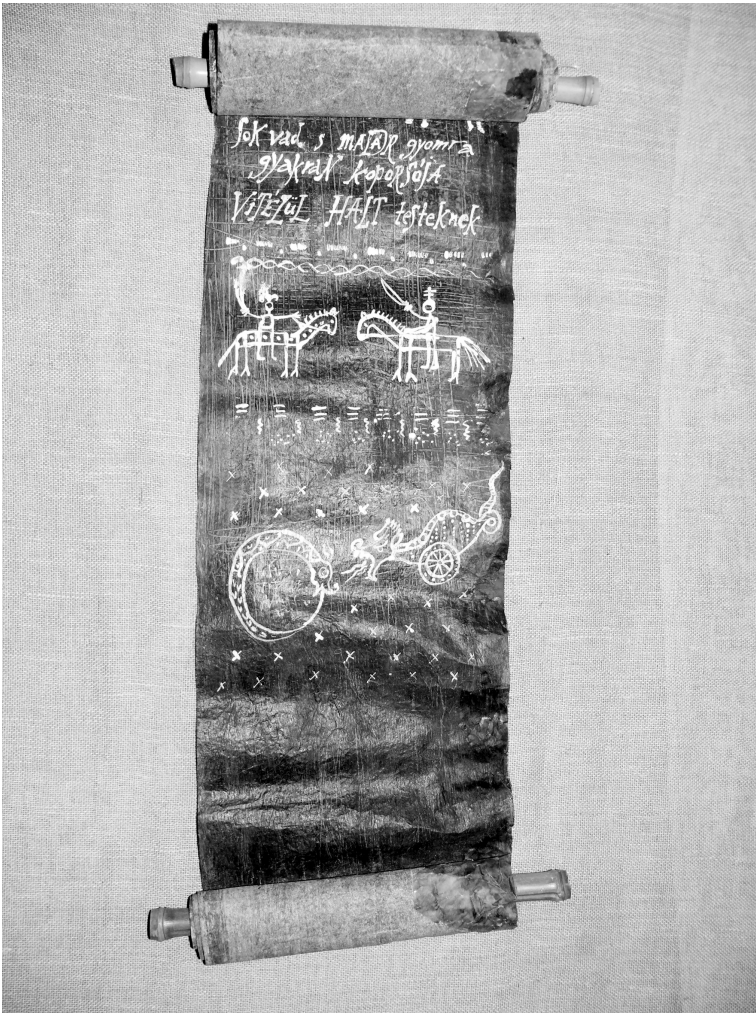 Sok vad s MADÁR gyomra
gyakraN kopORSÓJA
ViTÉZÜL HALT testeknek